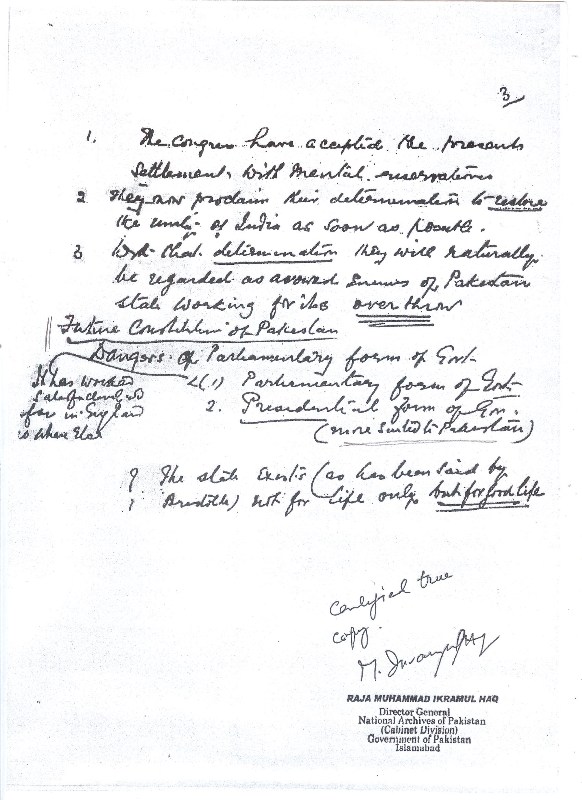 3
1. The Congress have accepted the present
Settlement, with mental reservations
2 They now proclaim their determination to restore
the unity of India as soon as possible.
3 With that determination they will naturally
be regarded as avowed Enemies of Pakistan
State working for its over throw
Future Constitution of Pakistan
Dangers of Parliamentary form of Govt-
It has worked
Satisfactorily so
far in England
no where else
(1) Parliamentary form of Govt.
2. Presidential form of Gov.
(more suited to Pakistan)
The State Exists (as has been said by
Aristotle) not for life only but for good life
Certified true
copy.
RAJA MUHAMMAD IKRAMUL HAQ
Director General
National Archives of Pakistan
(Cabinet Division)
Government of Pakistan
Islamabad